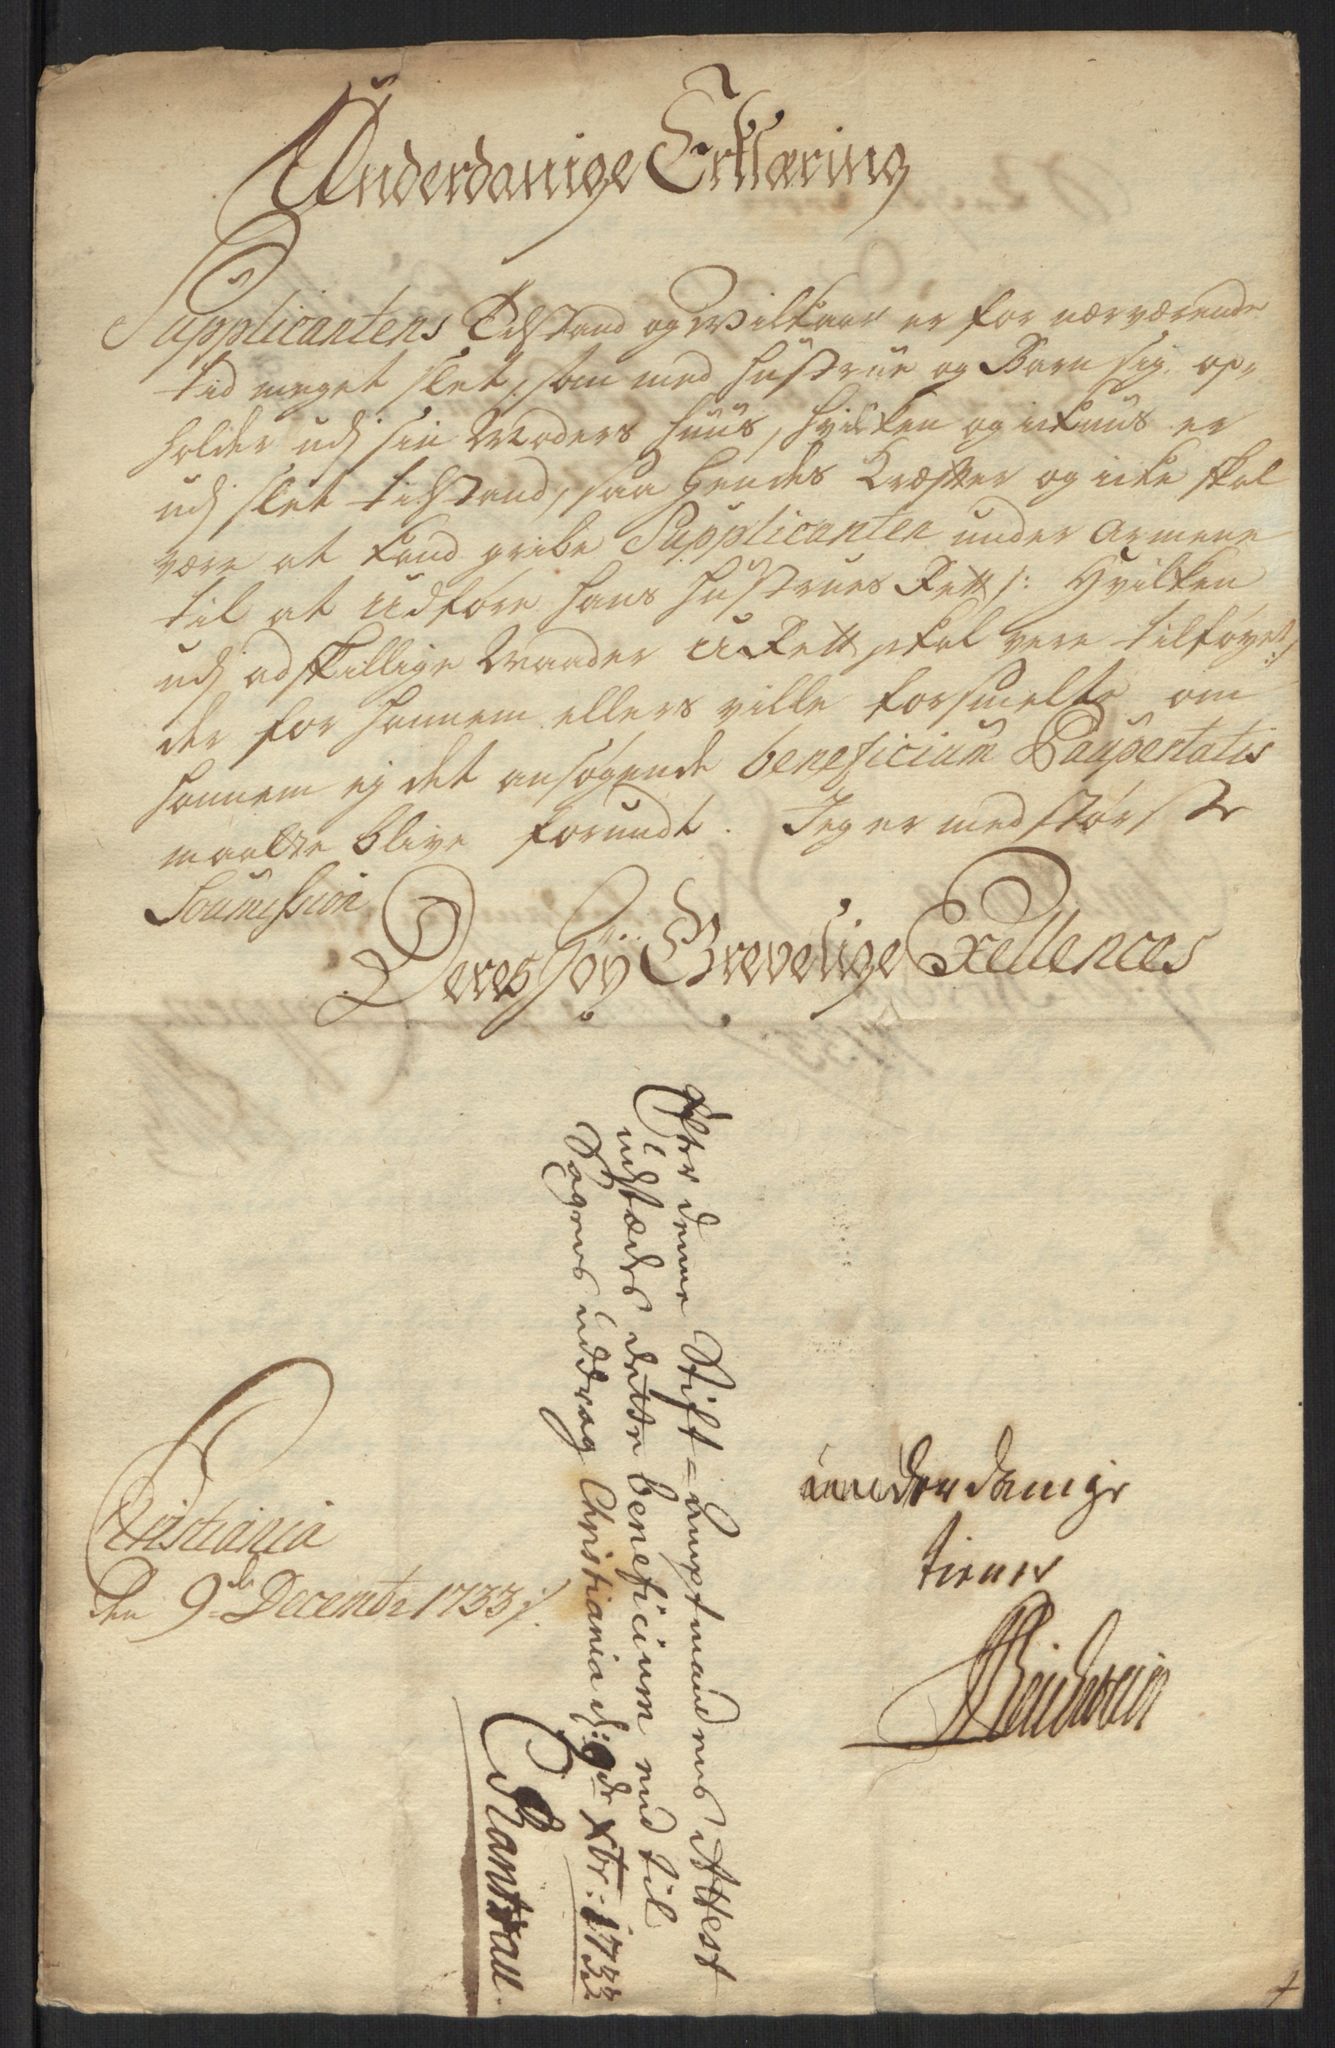 Underdanige Erklæring
Supplicantens Tilstand og Wilkaar er for nærværende
tid meget slet, som med Hustrue og Børn sig op-
holder udj sin Moders Huus, hvilken og
udj slet tilstand, saa Hendes Kræfter og icke skal
være at kand gribe Supplicanten under Armene
til at udføre hans Hustrues Rett /: Hvilken
udj adskillige Maader URett skal være tilføyet :/
der for hannem ellers ville forsmelte om
hannem ej det ansøgende beneficium Paupertatis
maatte blive forundt. Jeg er med største
Soumission
Deres Høy Grevelige Exellences
underdanige
tiener
Christiania
den 9de Decembr 1733 ./.
Efter denne Stift-Amptmandens Attest
udstædes dette beneficium ned til
Sagens uddrag Christiania d: 9de Xbr: 1733
CRantzau.